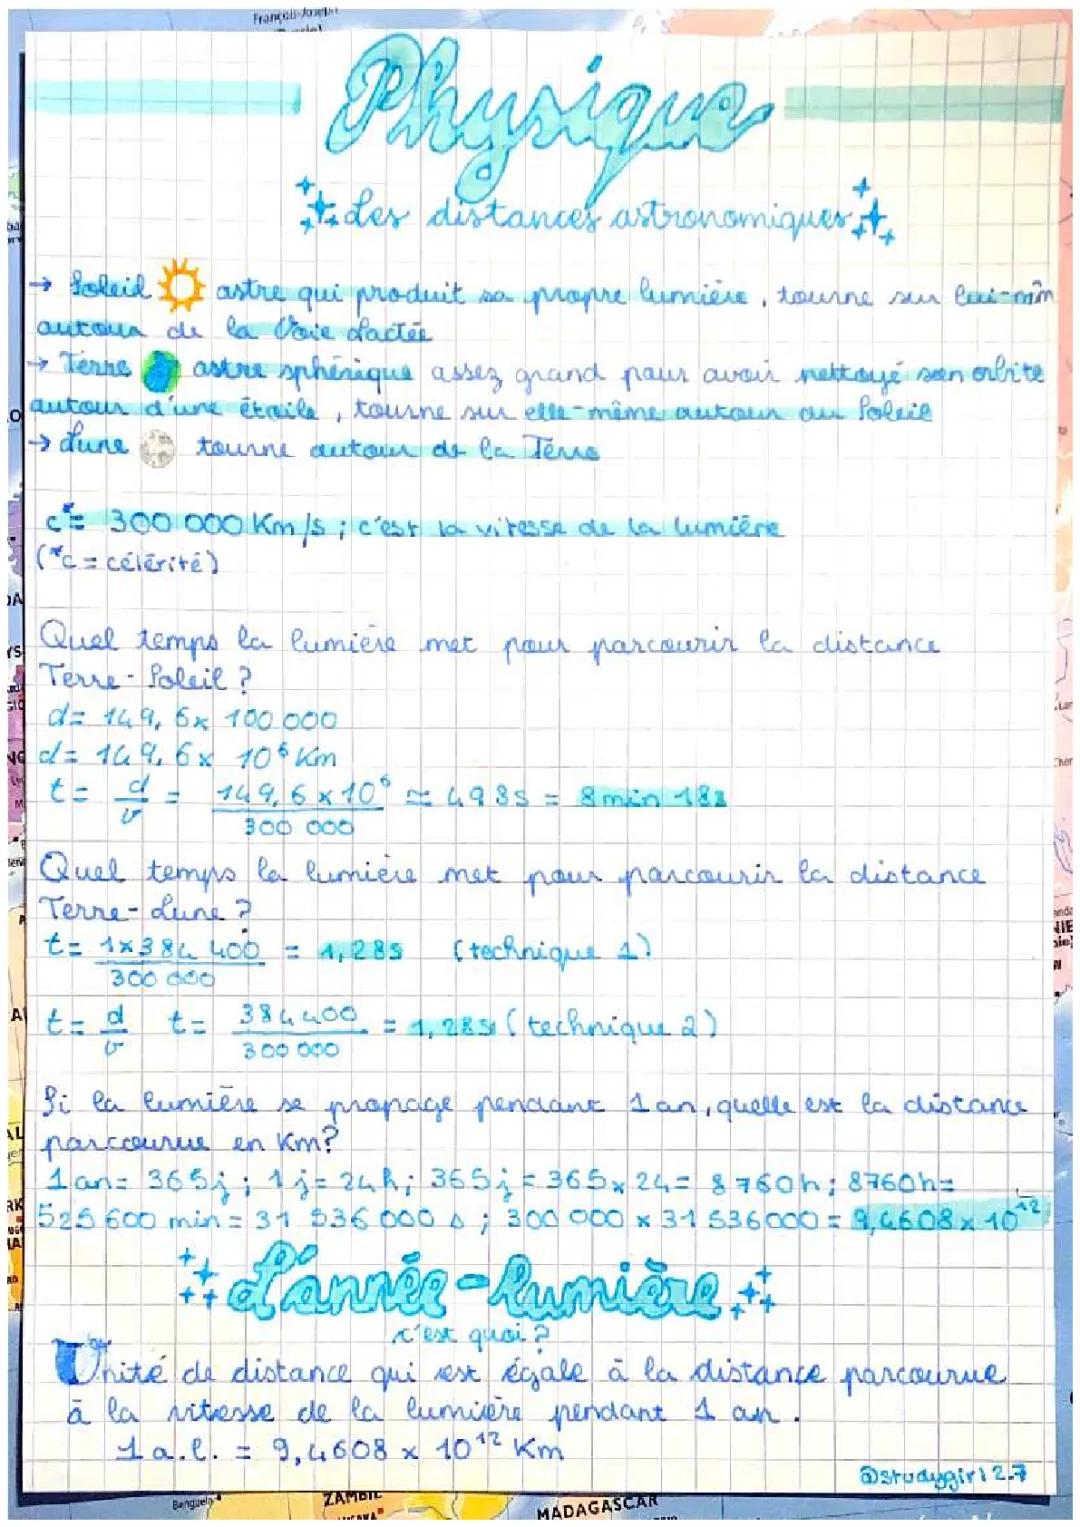 François-Joseph
Physique
Les distances astronomiques
→ Soleil astre qui produit sa propre lumière, tourne sur lui-mm
autour de la Voie Lactée
→ Terre astre sphérique assez grand pour avoir nettoyé son orbite
autour d'une étoile, tourne sur elle-même autour du Soleil
→ Lune tourne autour de la Terre
c*= 300 000 Km/s ; c'est la vitesse de la lumière
(*c = célérité)
Quel temps la lumière met pour parcourir la distance
Terre-Soleil ?
d= 149,6x 100 000
d= 149,6x 10⁶ Km
t= d/v = 149,6x10⁶/300 000 ≃ 498s = 8min 18s
Quel temps la lumière met pour parcourir la distance
Terre-Lune ?
t= 1x384 400/300 000 = 1,28s (technique 1)
t= d/v t= 384 400/300 000 = 1,28s (technique 2)
Si la lumière se propage pendant 1 an, quelle est la distance
parcourue en Km?
1 an= 365j ; 1j= 24h ; 365j = 365x24= 8760h ; 8760h=
525 600 min = 31 536 000 s ; 300 000 x 31 536000 = 9,4608x10¹²
L'année-lumière
c'est quoi ?
Unité de distance qui est égale à la distance parcourue
à la vitesse de la lumière pendant 1 an.
1 a.l. = 9,4608 x 10¹² Km
@studygirl2.7
Benguela
ZAMBIE
MADAGASCAR